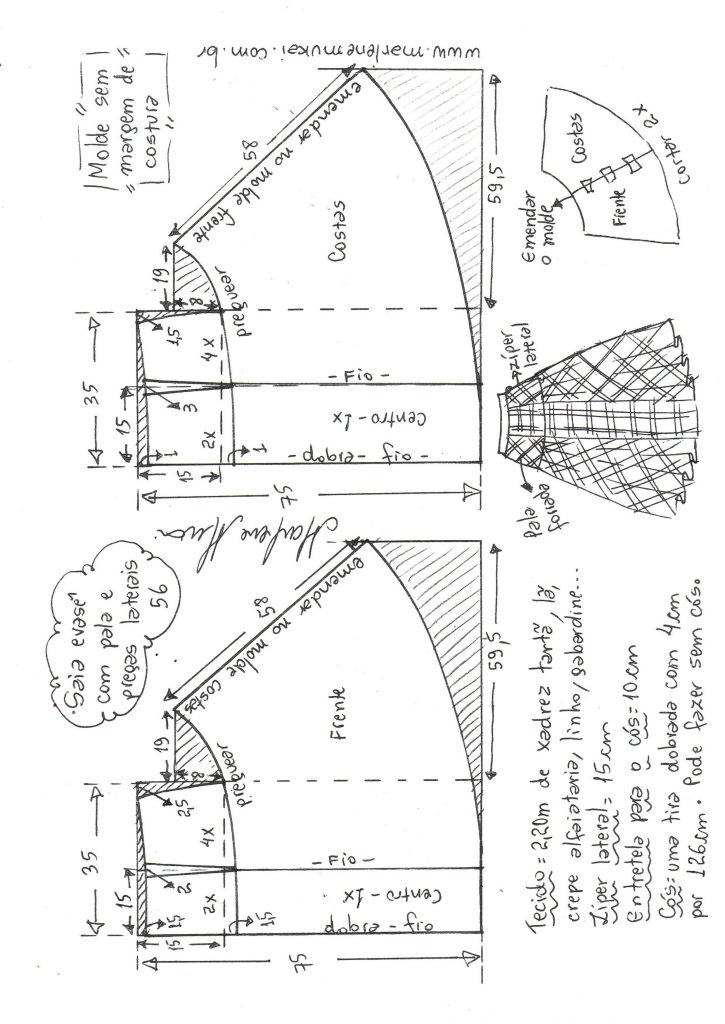 "Molde sem
margem de
costura"
www.marlenemukai.com.br
Saia evasê
com pala e
pregas laterais
56
35
15
19
58
emendar no molde
costas
1,5
2
2,5
8
15
2x
4x
1,5
preguear
75
Frente
- Fio -
Centro - 1x
dobra - fio
59,5
35
15
19
58
emendar no molde frente
1
3
1,5
8
15
2x
4x
1
preguear
75
Costas
- Fio -
Centro - 1x
- dobra - fio -
59,5
Emendar
o molde
Costas
Frente
Cortar 2x
zíper
lateral
pala
forrada
Tecido = 2,20m de xadrez tartã, lã,
crepe alfaiataria, linho, gabardine...
Zíper lateral = 15cm
Entretela para o cós = 10cm
Cós = uma tira dobrada com 4cm
por 126cm. Pode fazer sem cós.